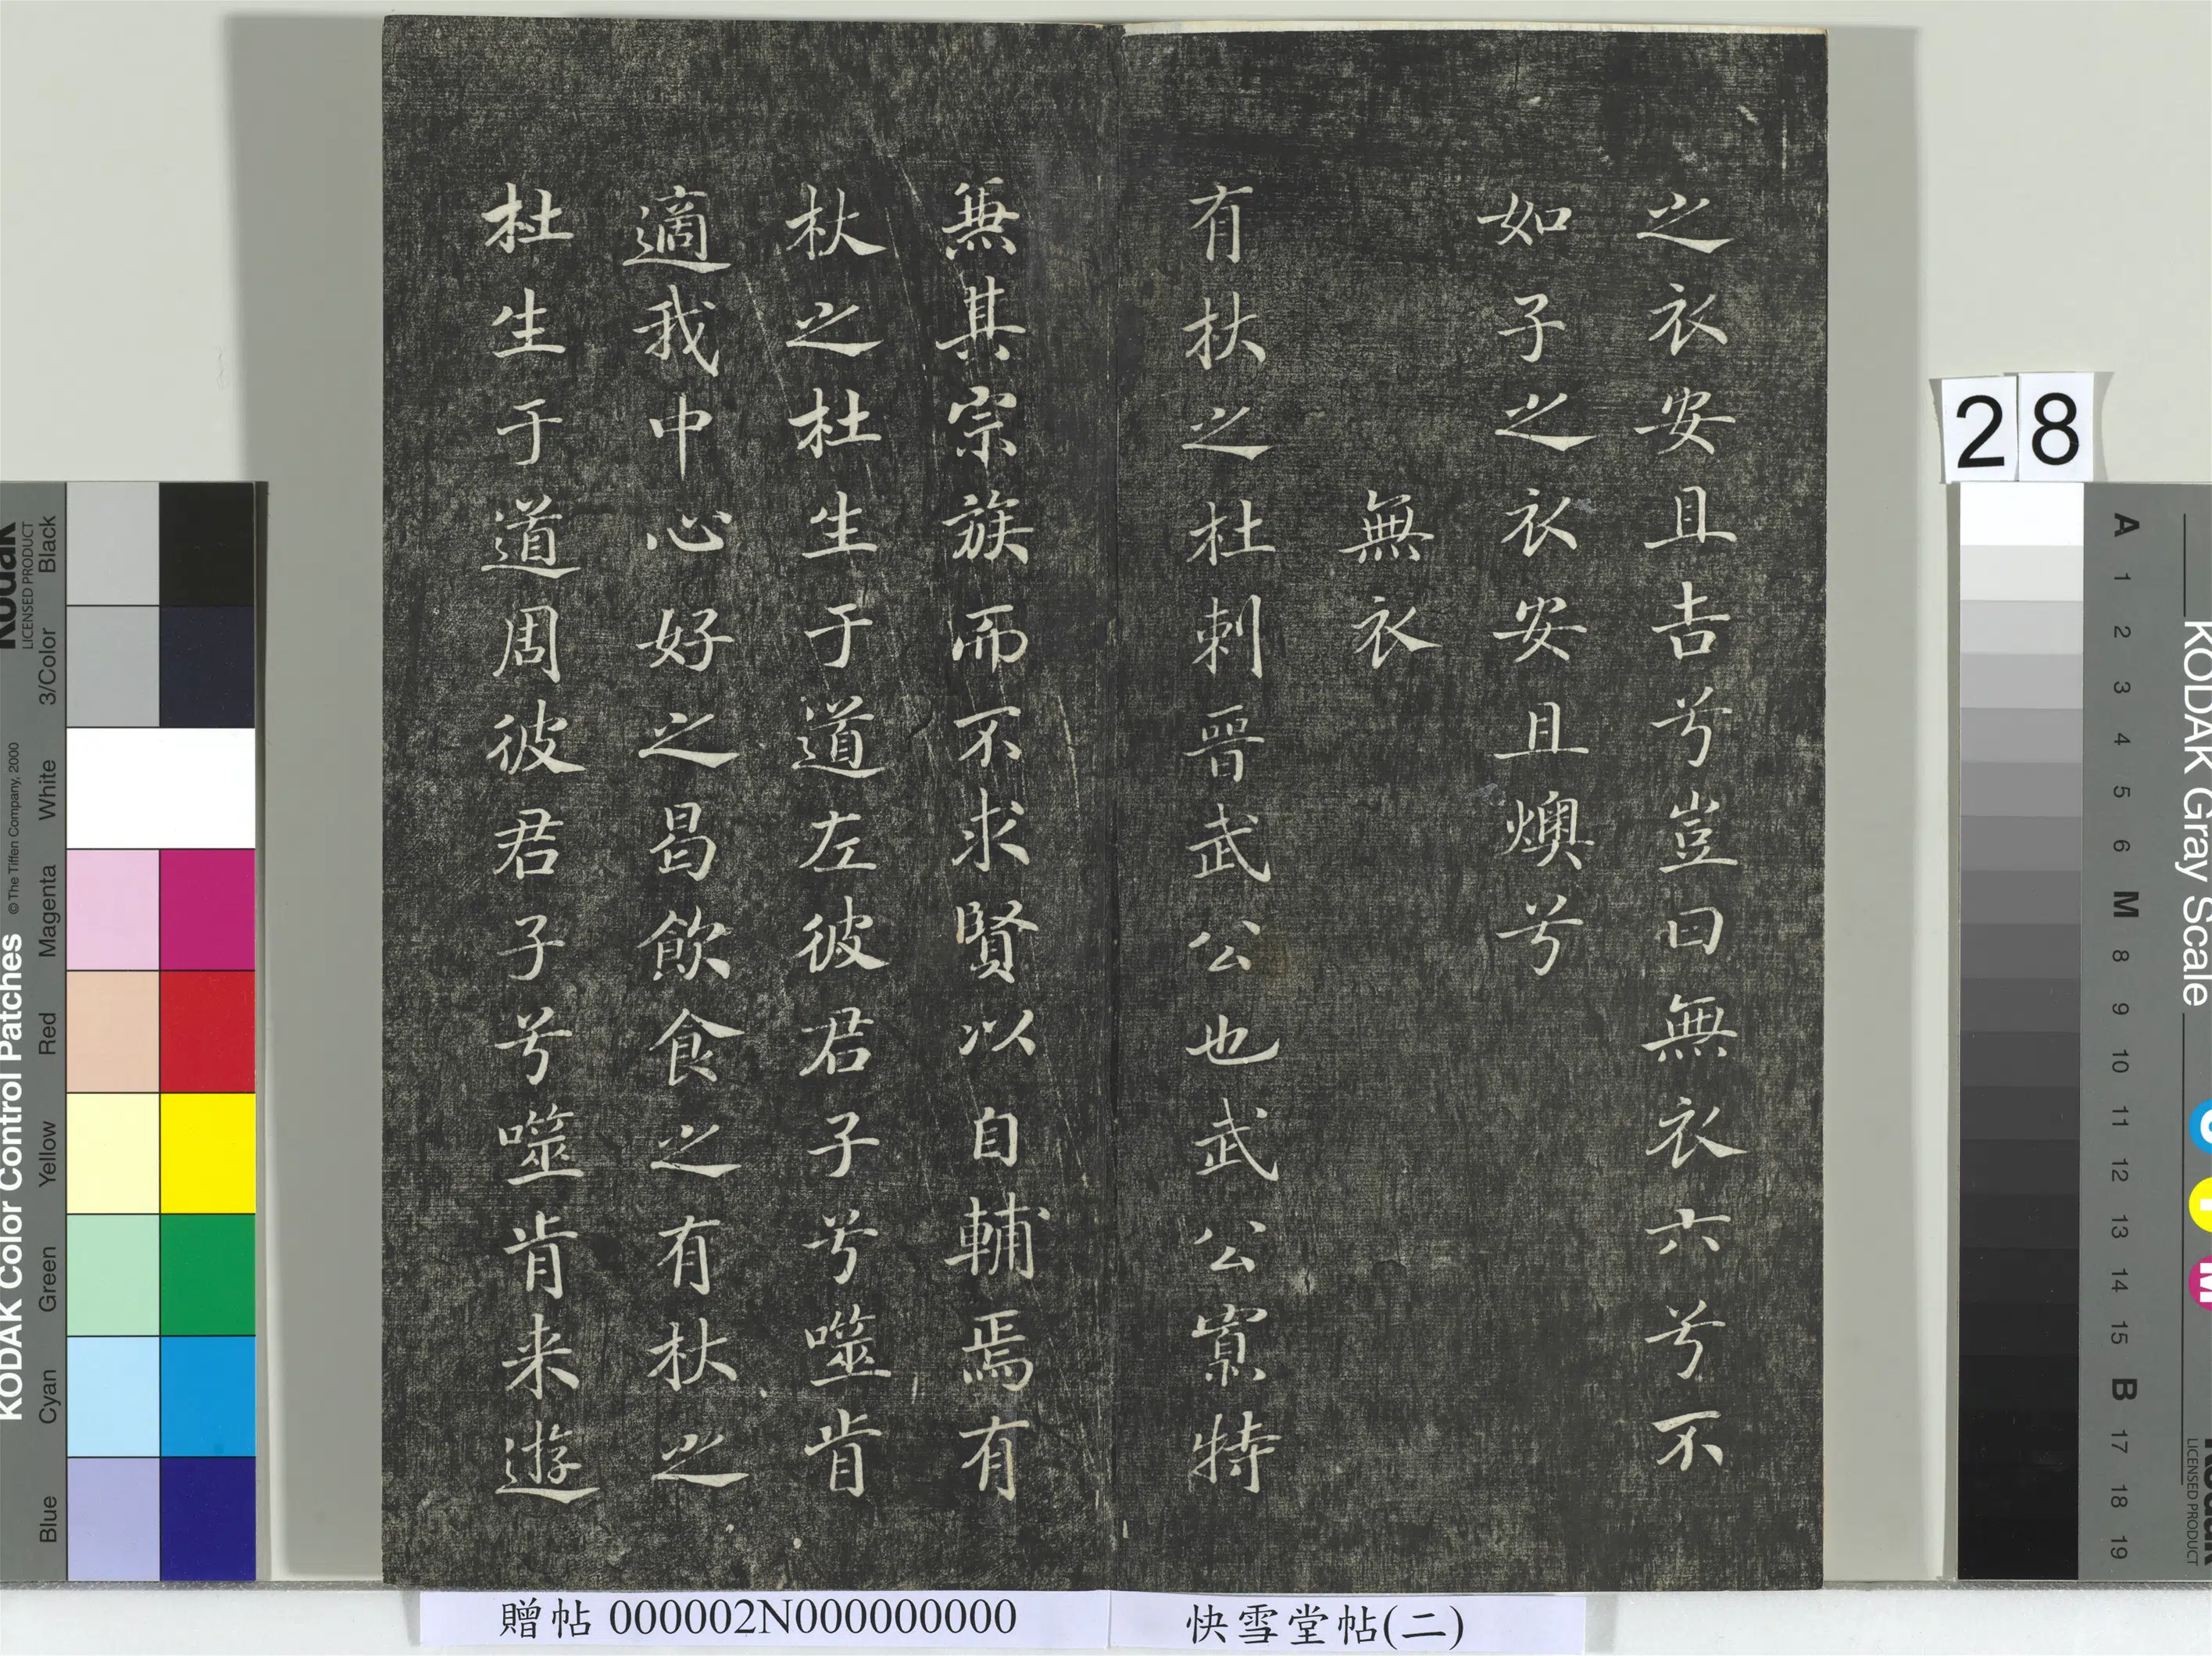 之衣安且吉兮豈曰無衣六兮不
如子之衣安且燠兮
無衣
有杕之杜刺晉武公也武公寡特
無其宗族而不求賢以自輔焉有
杕之杜生于道左彼君子兮噬肯
適我中心好之曷飲食之有杕之
杜生于道周彼君子兮噬肯来遊
贈帖 000002N000000000
快雪堂帖(二)
28
KODAK Color Control Patches
©The Tiffen Company, 2000
Kodak
LICENSED PRODUCT
Blue Cyan Green Yellow Red Magenta White 3/Color Black
KODAK Gray Scale
A 1 2 3 4 5 6 M 8 9 10 11 12 13 14 15 B 17 18 19
Kodak
LICENSED PRODUCT
C
Y
M